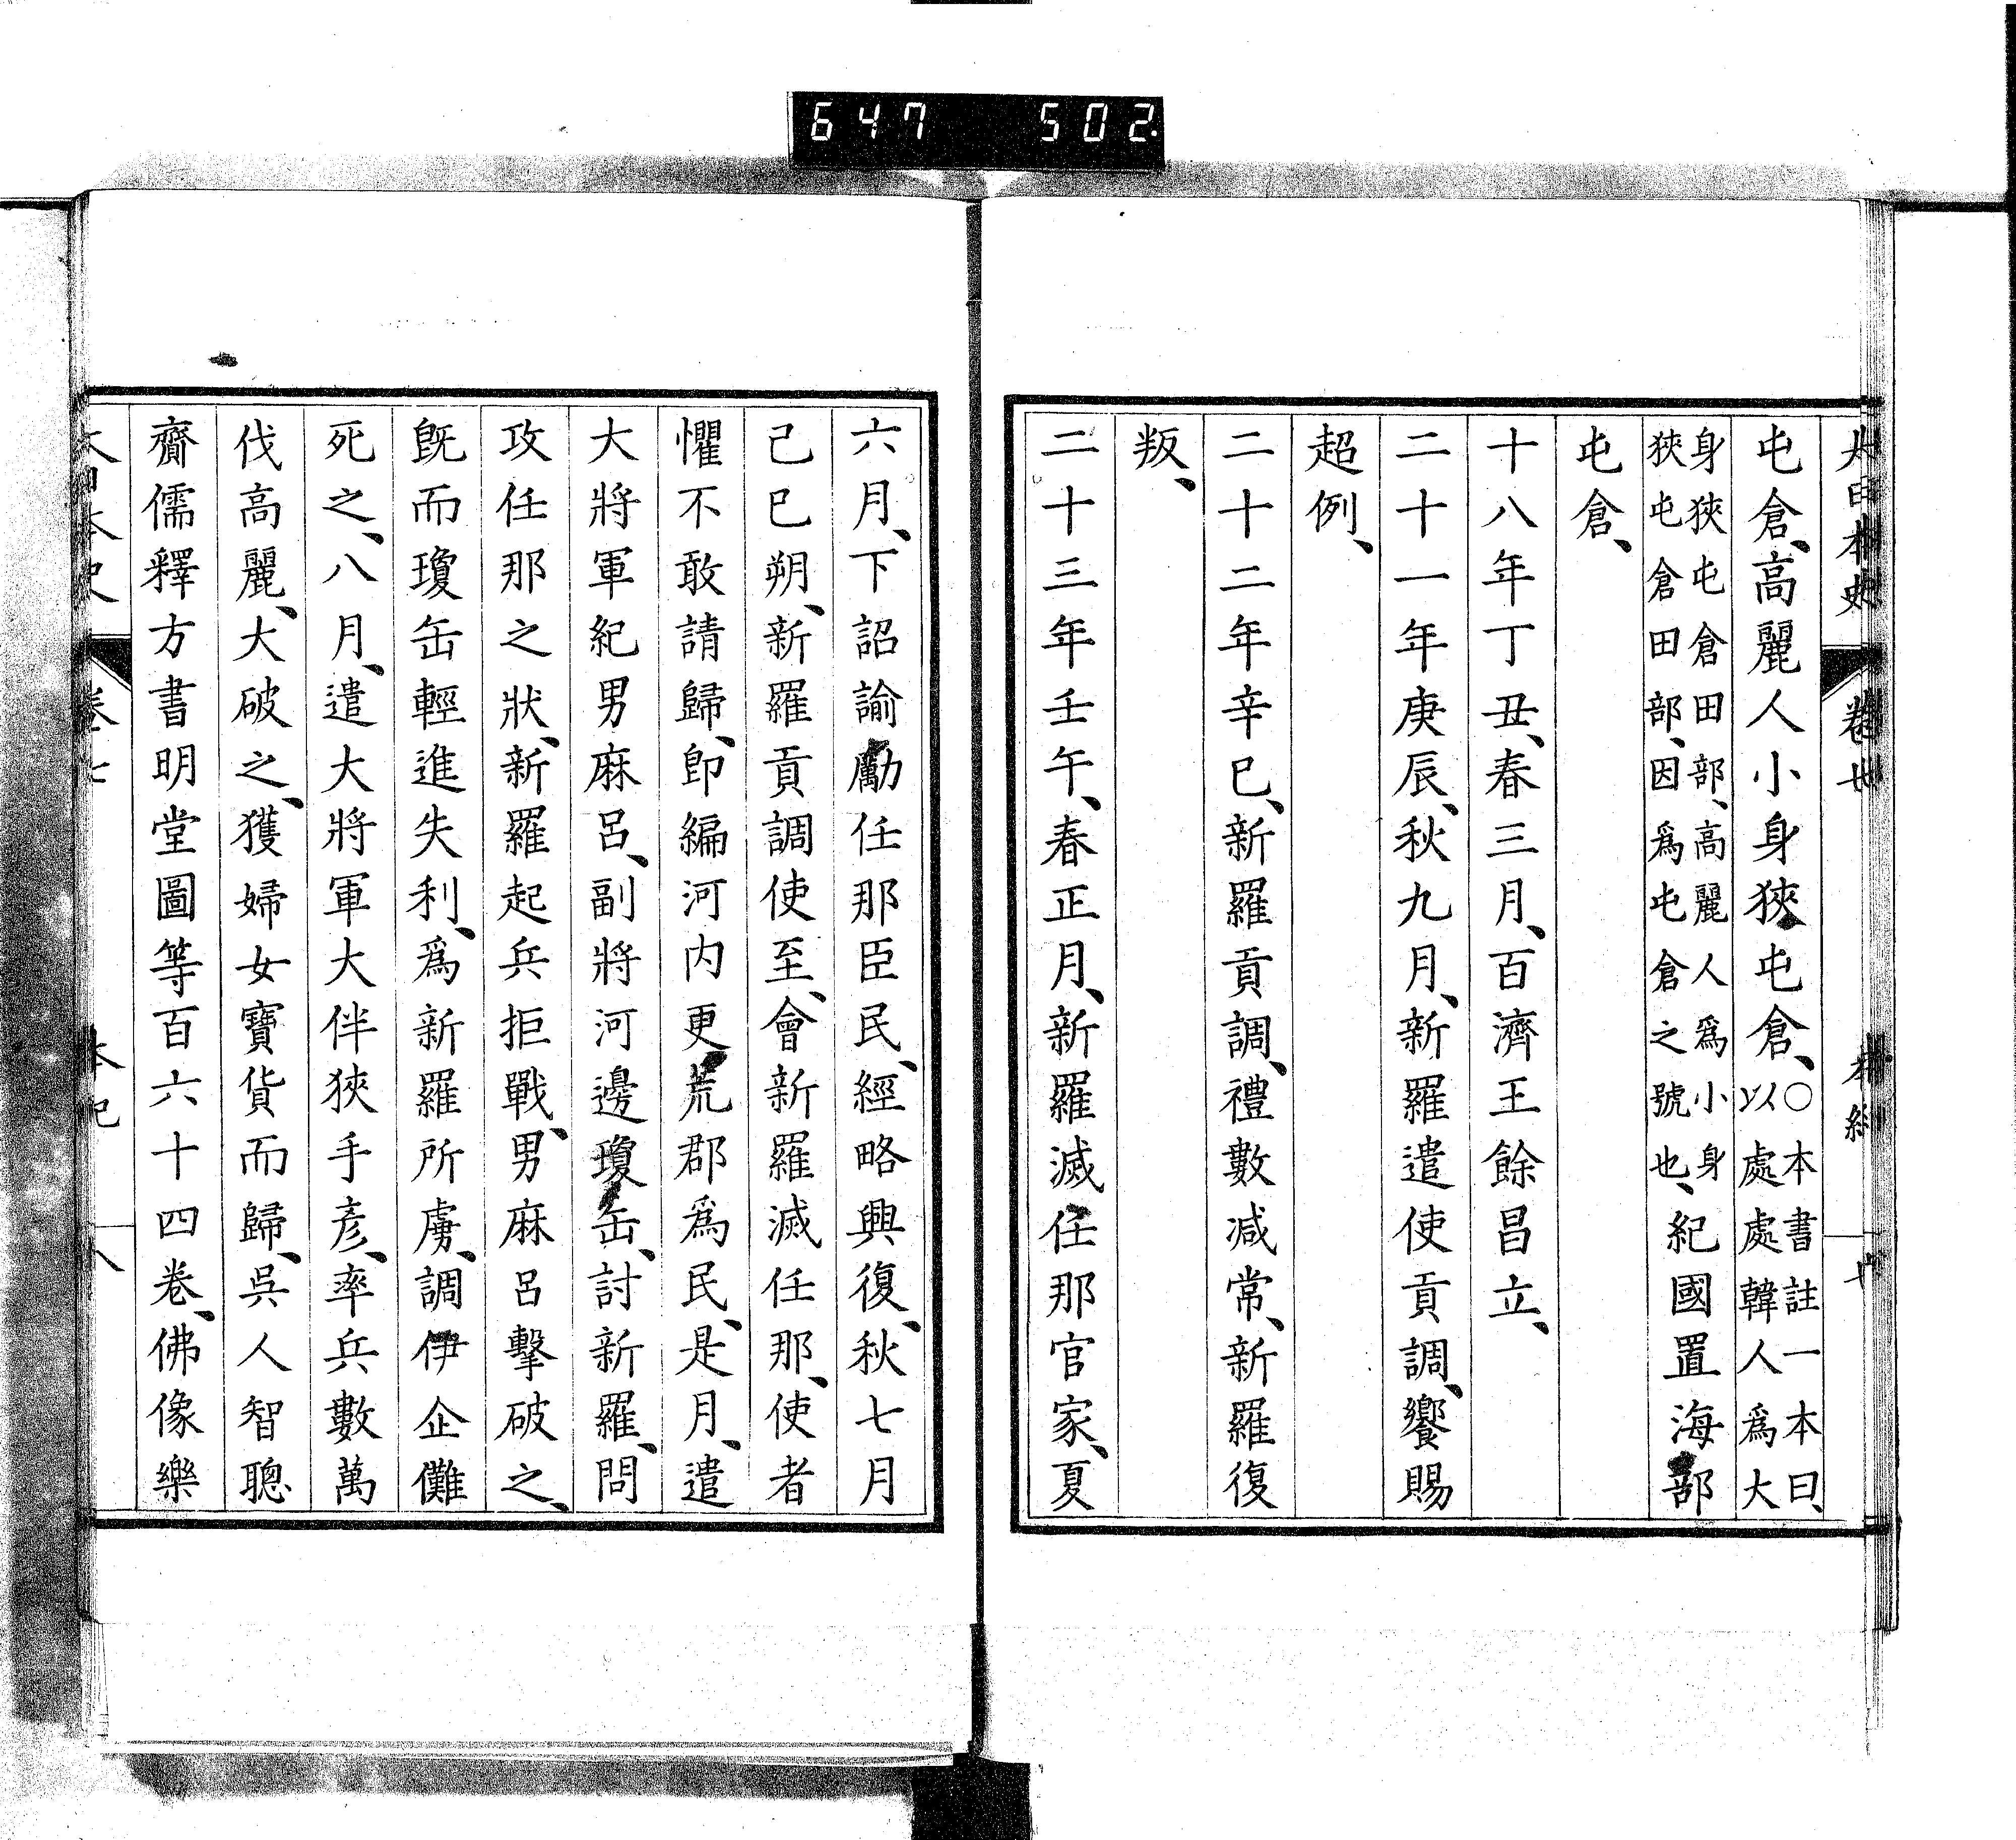 647 502
大日本史 卷七 本紀 七
屯倉、高麗人小身狹屯倉、○本書註一本曰、以處處韓人爲大
身狹屯倉田部、高麗人爲小身狹屯倉田部、因爲屯倉之號也、紀國置海部
屯倉、
十八年丁丑、春三月、百濟王餘昌立、
二十一年庚辰、秋九月、新羅遣使貢調、饗賜
超例、
二十二年辛巳、新羅貢調、禮數減常、新羅復
叛、
二十三年壬午、春正月、新羅滅任那官家、夏
六月、下詔諭勵任那臣民、經略興復、秋七月
己巳朔、新羅貢調使至、會新羅滅任那、使者
懼不敢請歸、卽編河内更荒郡爲民、是月、遣
大將軍紀男麻呂、副將河邊瓊缶、討新羅、問
攻任那之狀、新羅起兵拒戰、男麻呂擊破之、
旣而瓊缶輕進失利、爲新羅所虜、調伊企儺
死之、八月、遣大將軍大伴狹手彥、率兵數萬
伐高麗、大破之、獲婦女寶貨而歸、吳人智聰
齎儒釋方書明堂圖等百六十四卷、佛像樂
大日本史 卷七 本紀 八